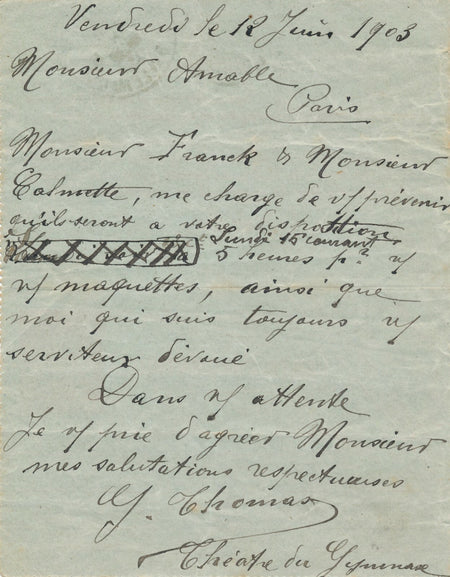 Vendredi le 12 Juin 1903
Monsieur Amable
Paris
Monsieur Franck & Monsieur
Calmette, me charge de vs prévenir
qu'ils seront a votre disposition
Lundi 15 courant
à 5 heures pr vs
vs maquettes, ainsi que
moi qui suis toujours vs
serviteur dévoué
Dans vs attente
Je vs prie d'agréer Monsieur
mes salutations respectueuses
G. Thomas
Théâtre du Gymnase